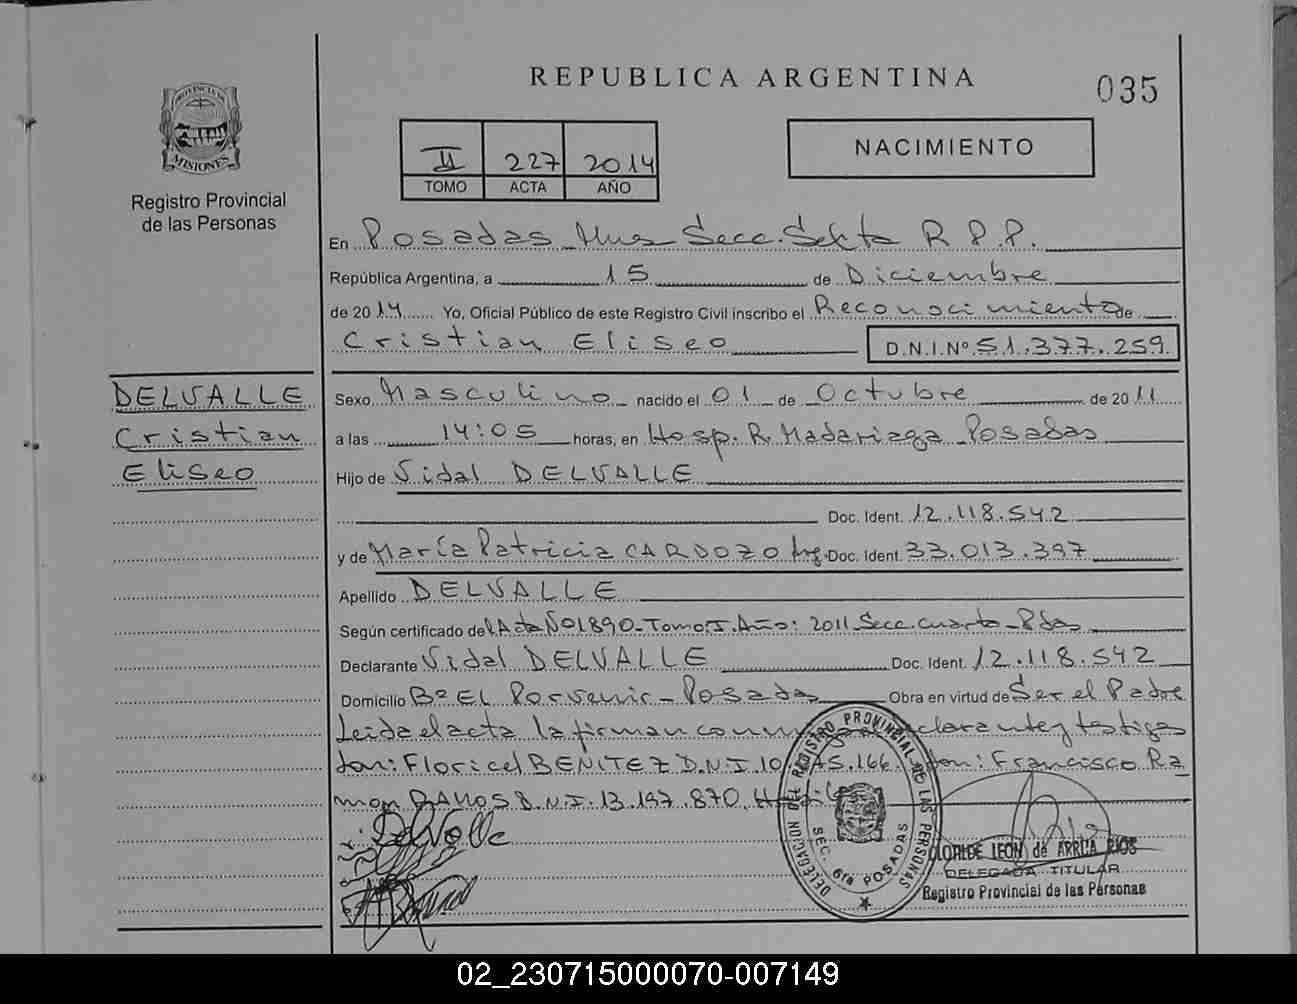 REPUBLICA ARGENTINA
035
PROVINCIA DE
MISIONES
Registro Provincial
de las Personas
II 227 2014
TOMO ACTA AÑO
NACIMIENTO
En Posadas Mnes Secc. Sexta R.P.P.
República Argentina, a 15 de Diciembre
de 2014 Yo, Oficial Público de este Registro Civil inscribo el Reconocimiento de
Cristian Eliseo D.N.I.Nº 51.377.259
DELVALLE
Cristian
Eliseo
Sexo Masculino nacido el 01 de Octubre de 2011
a las 14:05 horas, en Hosp. R. Madariaga Posadas
Hijo de Vidal DELVALLE
Doc. Ident. 12.118.542
y de María Patricia CARDOZO Arg. Doc. Ident. 33.013.397
Apellido DELVALLE
Según certificado del Acta Nº 1890-Tomo:I. Año: 2011 Secc. Cuarta-Pdas
Declarante Vidal DELVALLE Doc. Ident. 12.118.542
Domicilio Bº EL Porvenir-Posadas Obra en virtud de Ser el Padre
Leida el acta la firman conmigo declarante y testigos
don: Floricel BENITEZ D.N.I. 10. 45.166. don: Francisco Ra
mon RAMOS D.N.I. 13.197.870.
DelValle
DELEGACION DEL REGISTRO PROVINCIAL DE LAS PERSONAS
SEC. 6ta POSADAS
LEON de ARRUA RIOS
DELEGADA TITULAR
Registro Provincial de las Personas
02_230715000070-007149